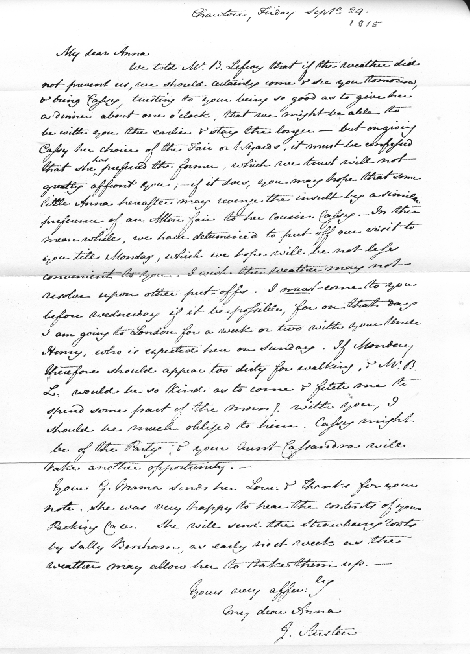 Chawton, Friday Septr. 29.
1815
My dear Anna
We told Mr. B. Lefroy that if the weather did
not prevent us, we should certainly come & see you tomorrow,
& bring Cassy, trusting to your being so good as to give her
a dinner about one o'clock, that we might be able to
be with you the earlier & stay the longer — but on giving
Cassy her choice of the Fair or Wyards, it must be confessed
that she has preferred the former, which we trust will not
greatly affront you; — if it does, you may hope that some
little Anna hereafter may revenge the insult by a similar
preference of an Alton Fair to her Cousin Cassy. In the
mean while, we have determined to put off our visit to
you till Monday, which we hope will be not less
convenient to you. I wish the weather may not
resolve upon other put-offs. I must come to you
before Wednesday if it be possible, for on that day
I am going to London for a week or two with your Uncle
Henry, who is expected here on Sunday. If Monday
therefore should appear too dirty for walking, & Mr. B.
L. would be so kind as to come & fetch me to
spend some part of the morng. with you, I
should be much obliged to him. Cassy might
be of the Party, & your Aunt Cassandra will
take another opportunity. —
Your G. Mama sends her Love & Thanks for your
note. She was very happy to hear the contents of your
Packing Case. She will send the strawberry roots
by Sally Benham, as early next week as the
weather may allow her to take them up. —
Yours very affecly
My dear Anna
J. Austen